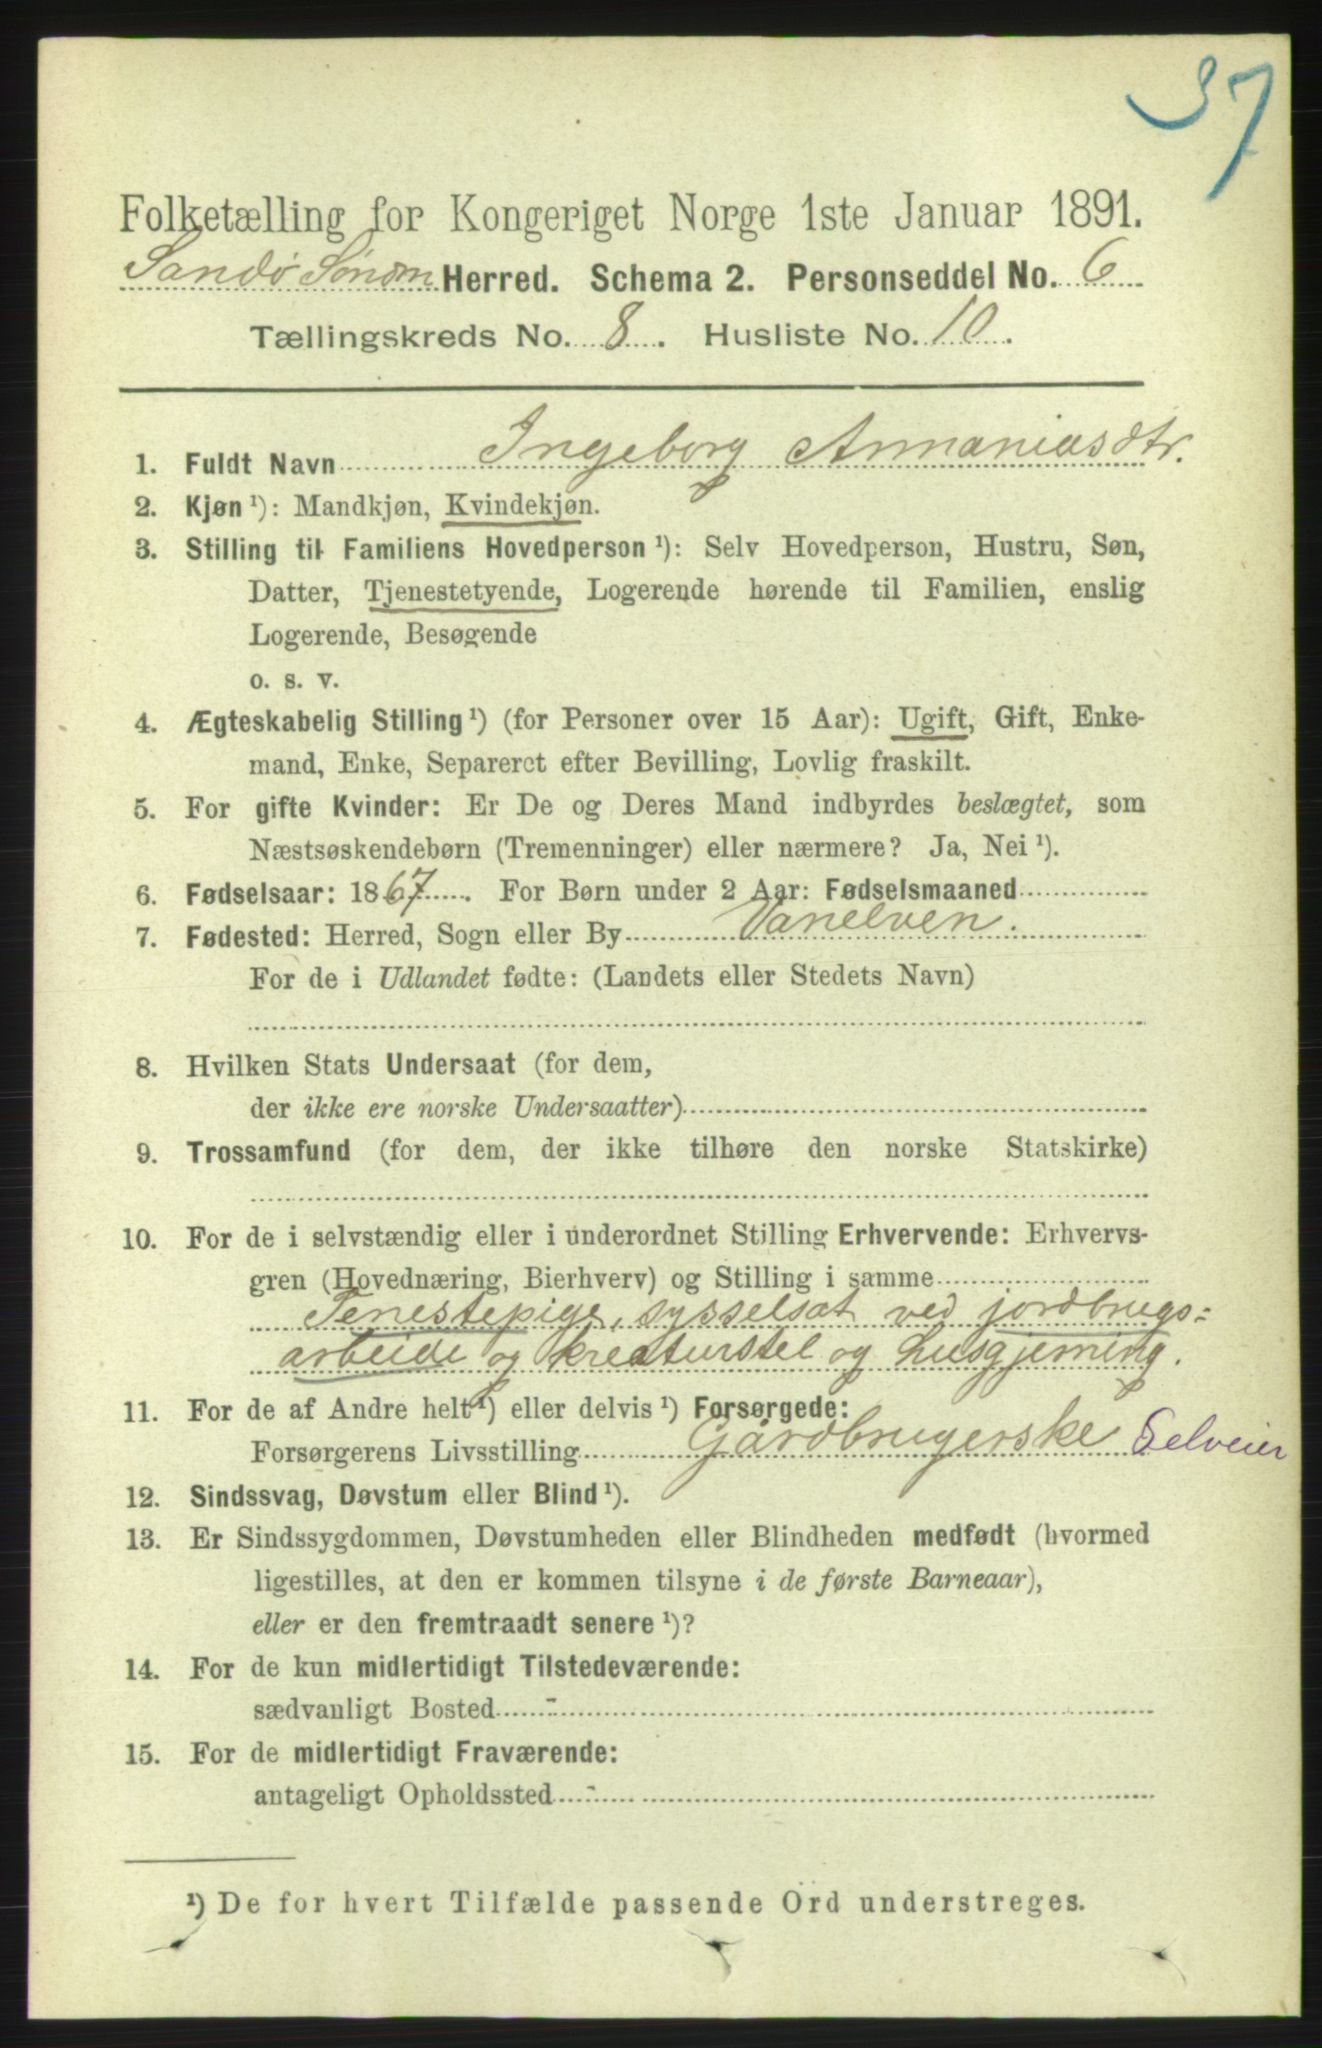 37
Folketælling for Kongeriget Norge 1ste Januar 1891.
Sandø Søndm Herred. Schema 2. Personseddel No. 6
Tællingskreds No. 8. Husliste No. 10.
1. Fuldt Navn Ingeborg Annaniasdtr.
2. Kjøn ¹): Mandkjøn, Kvindekjøn.
3. Stilling til Familiens Hovedperson ¹): Selv Hovedperson, Hustru, Søn,
Datter, Tjenestetyende, Logerende hørende til Familien, enslig
Logerende, Besøgende
o. s. v.
4. Ægteskabelig Stilling ¹) (for Personer over 15 Aar): Ugift, Gift, Enke-
mand, Enke, Separeret efter Bevilling, Lovlig fraskilt.
5. For gifte Kvinder: Er De og Deres Mand indbyrdes beslægtet, som
Næstsøskendebørn (Tremenninger) eller nærmere? Ja, Nei ¹).
6. Fødselsaar: 1867. For Børn under 2 Aar: Fødselsmaaned
7. Fødested: Herred, Sogn eller By Vanelven.
For de i Udlandet fødte: (Landets eller Stedets Navn)
8. Hvilken Stats Undersaat (for dem,
der ikke ere norske Undersaatter)
9. Trossamfund (for dem, der ikke tilhøre den norske Statskirke)
10. For de i selvstændig eller i underordnet Stilling Erhvervende: Erhvervs-
gren (Hovednæring, Bierhverv) og Stilling i samme
Tenestepige, sysselsat ved jordbrugs=
arbeide og kreaturstel og husgjerning.
11. For de af Andre helt ¹) eller delvis ¹) Forsørgede:
Forsørgerens Livsstilling Gårdbrugerske Selveier
12. Sindssvag, Døvstum eller Blind ¹).
13. Er Sindssygdommen, Døvstumheden eller Blindheden medfødt (hvormed
ligestilles, at den er kommen tilsyne i de første Barneaar),
eller er den fremtraadt senere ¹)?
14. For de kun midlertidigt Tilstedeværende:
sædvanligt Bosted -
15. For de midlertidigt Fraværende:
antageligt Opholdssted -
¹) De for hvert Tilfælde passende Ord understreges.